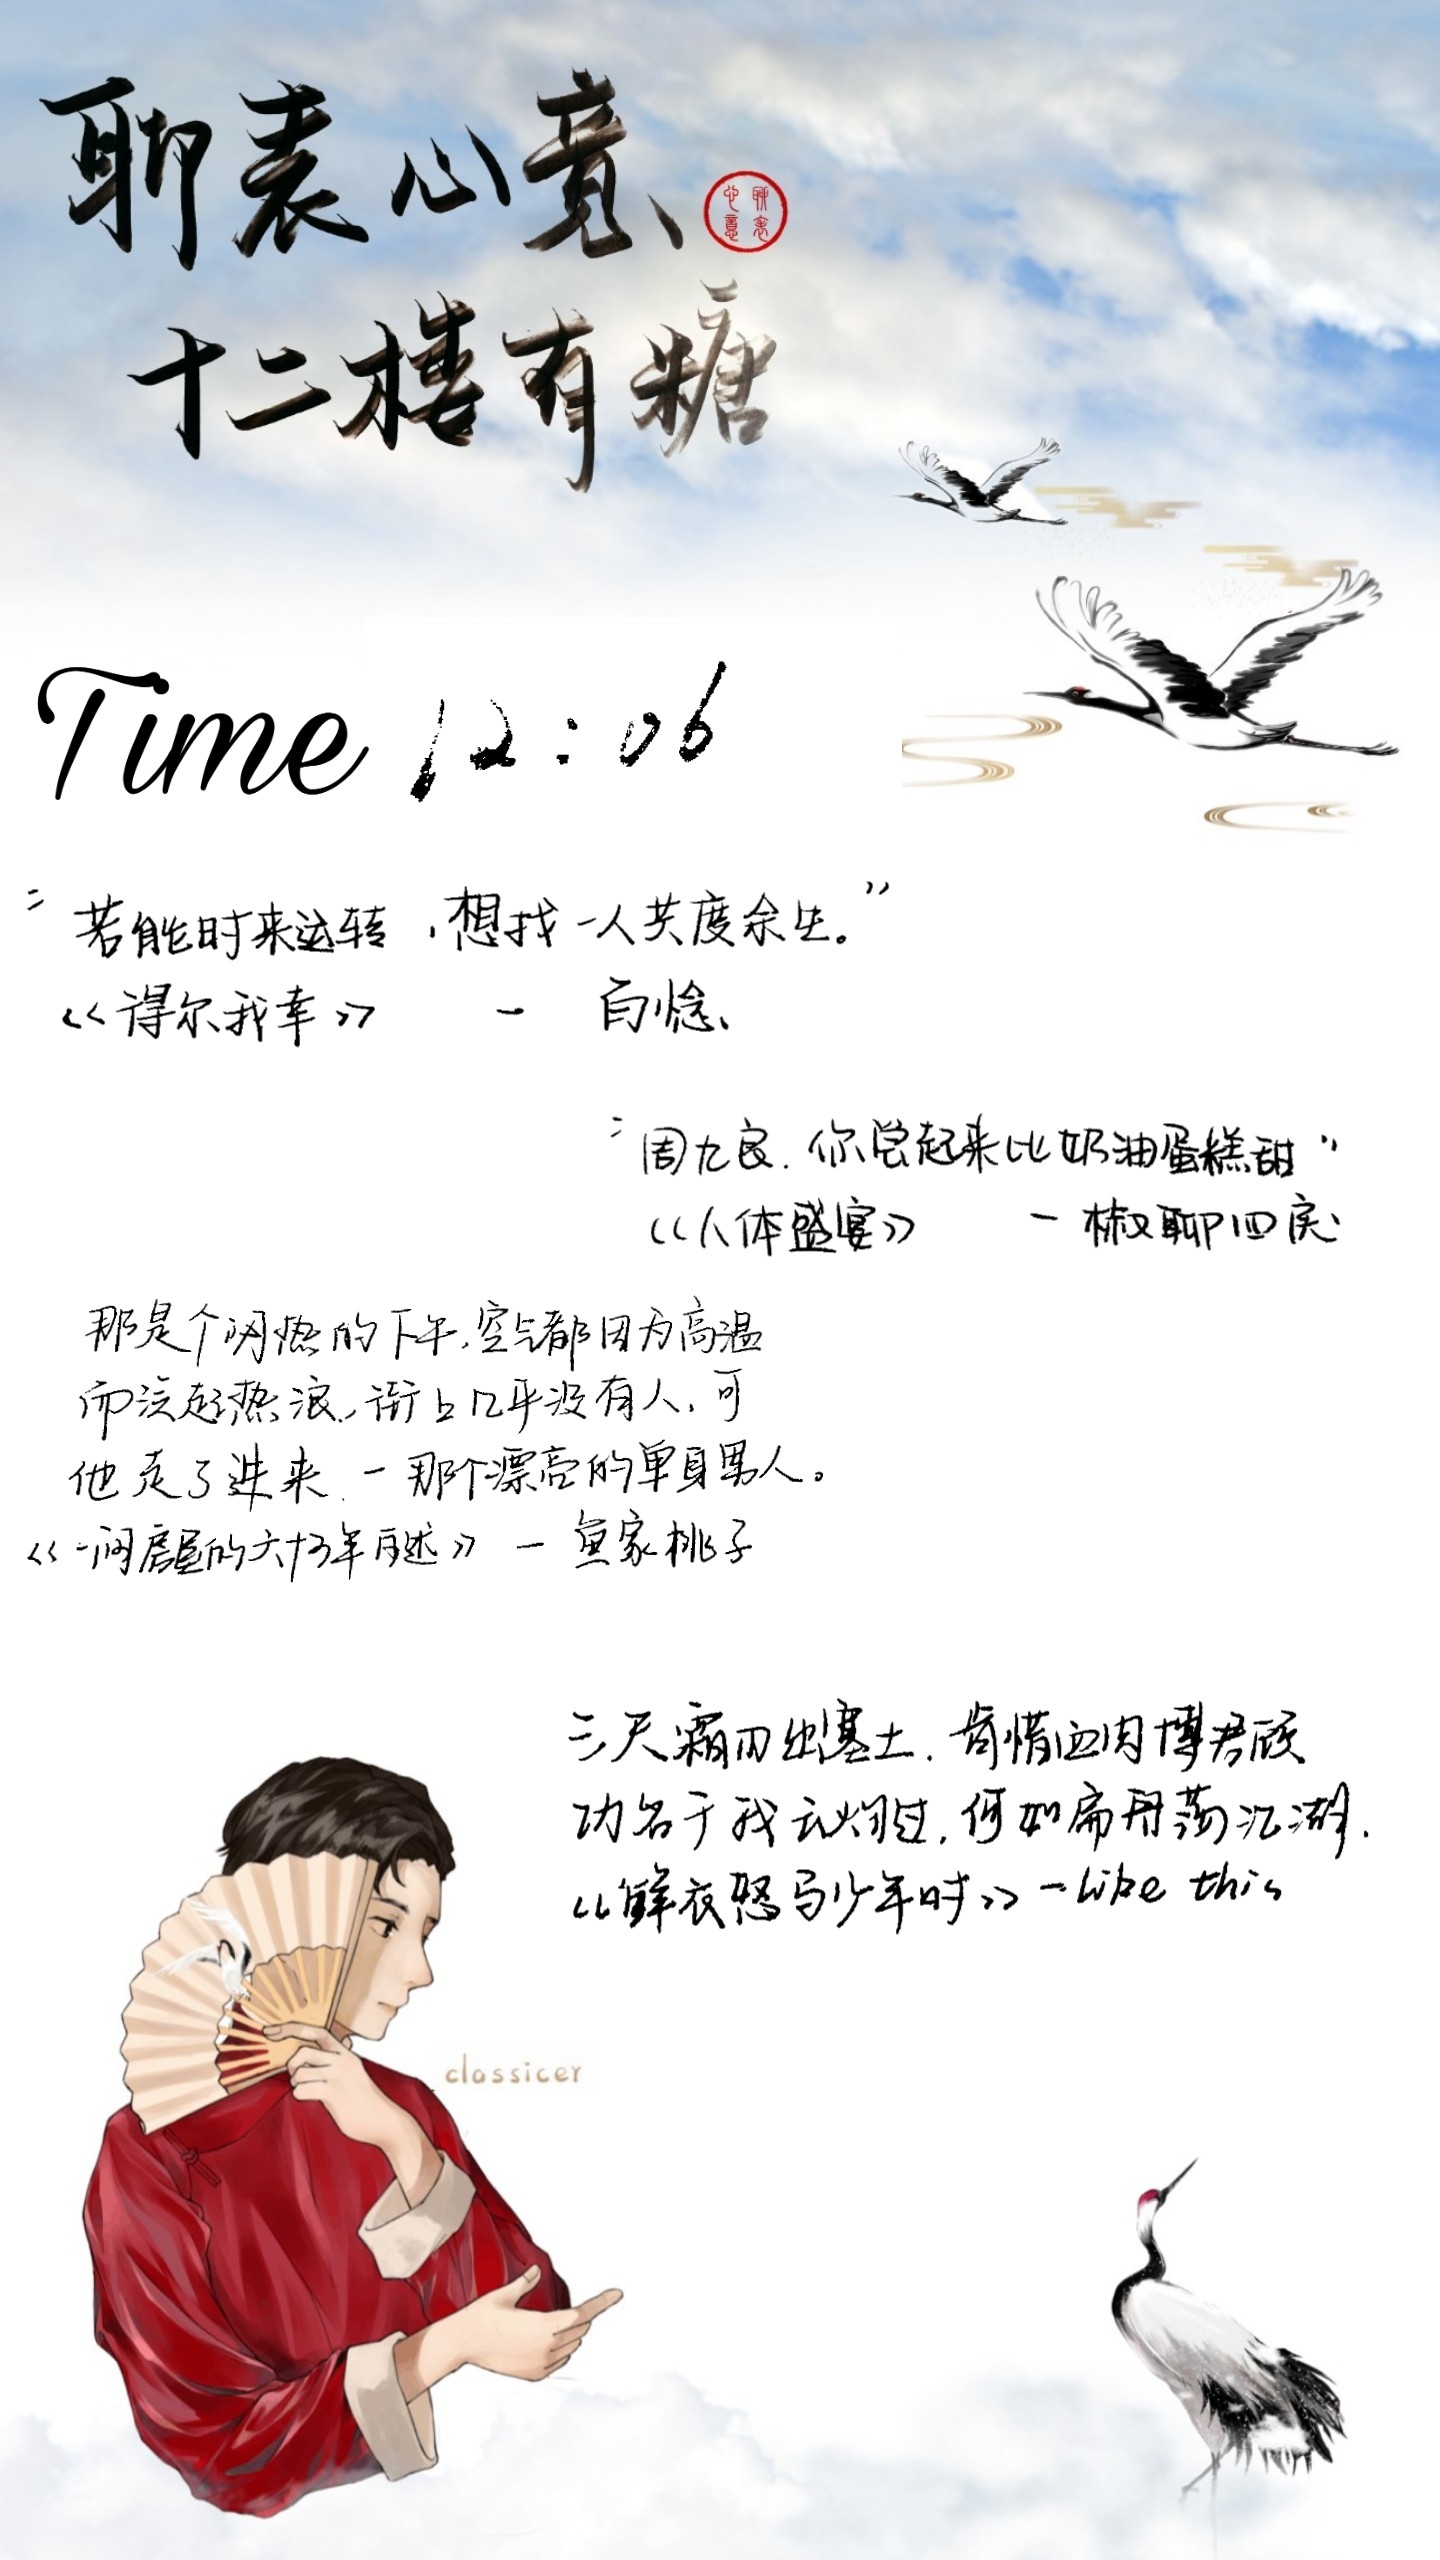 聊表心意、
聊表心意
十二楼有糖
Time 12:06
“若能时来运转,想找一人共度余生。”
《得尔我幸》 — 白惗、
“周九良.你尝起来比奶油蛋糕甜”
《人体盛宴》 — 椒聊四房
那是个闷热的下午,空气都因为高温
而泛起热浪,街上几乎没有人,可
他走了进来.—那个漂亮的单身男人。
— 鱼家桃子
三尺霜刃出塞土.肯惜血肉博君顾
功名于我云灼过,何如扁舟荡江湖.
《鲜衣怒马少年时》—like this
classicer